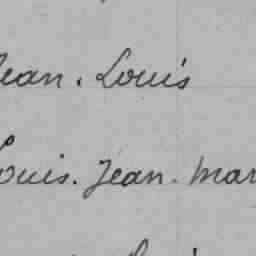 Jean. Louis
Louis. Jean. Mar